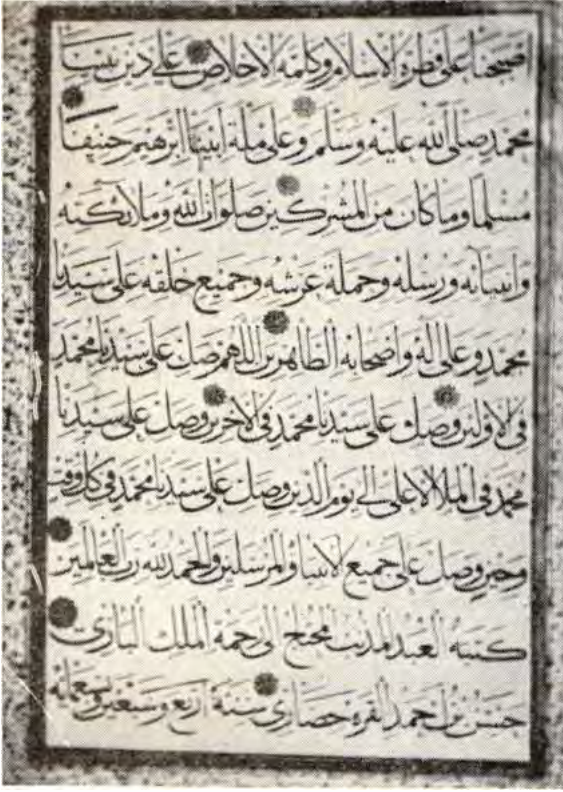 اصبحنا على فطرة الاسلام وكلمة الاخلاص على دين نبينا
محمد صلى الله عليه وسلم وعلى ملة ابينا ابرهيم حنيفا
مسلما وما كان من المشركين صلوات الله وملائكته
وانبيائه ورسله وحملة عرشه وجميع خلقه على سيدنا
محمد وعلى اله واصحابه الطاهرين اللهم صل على سيدنا محمد
في الاولين وصل على سيدنا محمد في الاخرين وصل على سيدنا
محمد في الملا الاعلى الى يوم الدين وصل على سيدنا محمد في كل وقت
وحين وصل على جميع الانبيا والمرسلين والحمد لله رب العالمين
كتبه العبد المذنب المحتاج الى رحمة الملك الباري
حسن بن احمد القره حصاري سنة اربع وسبعين وتسعمائه